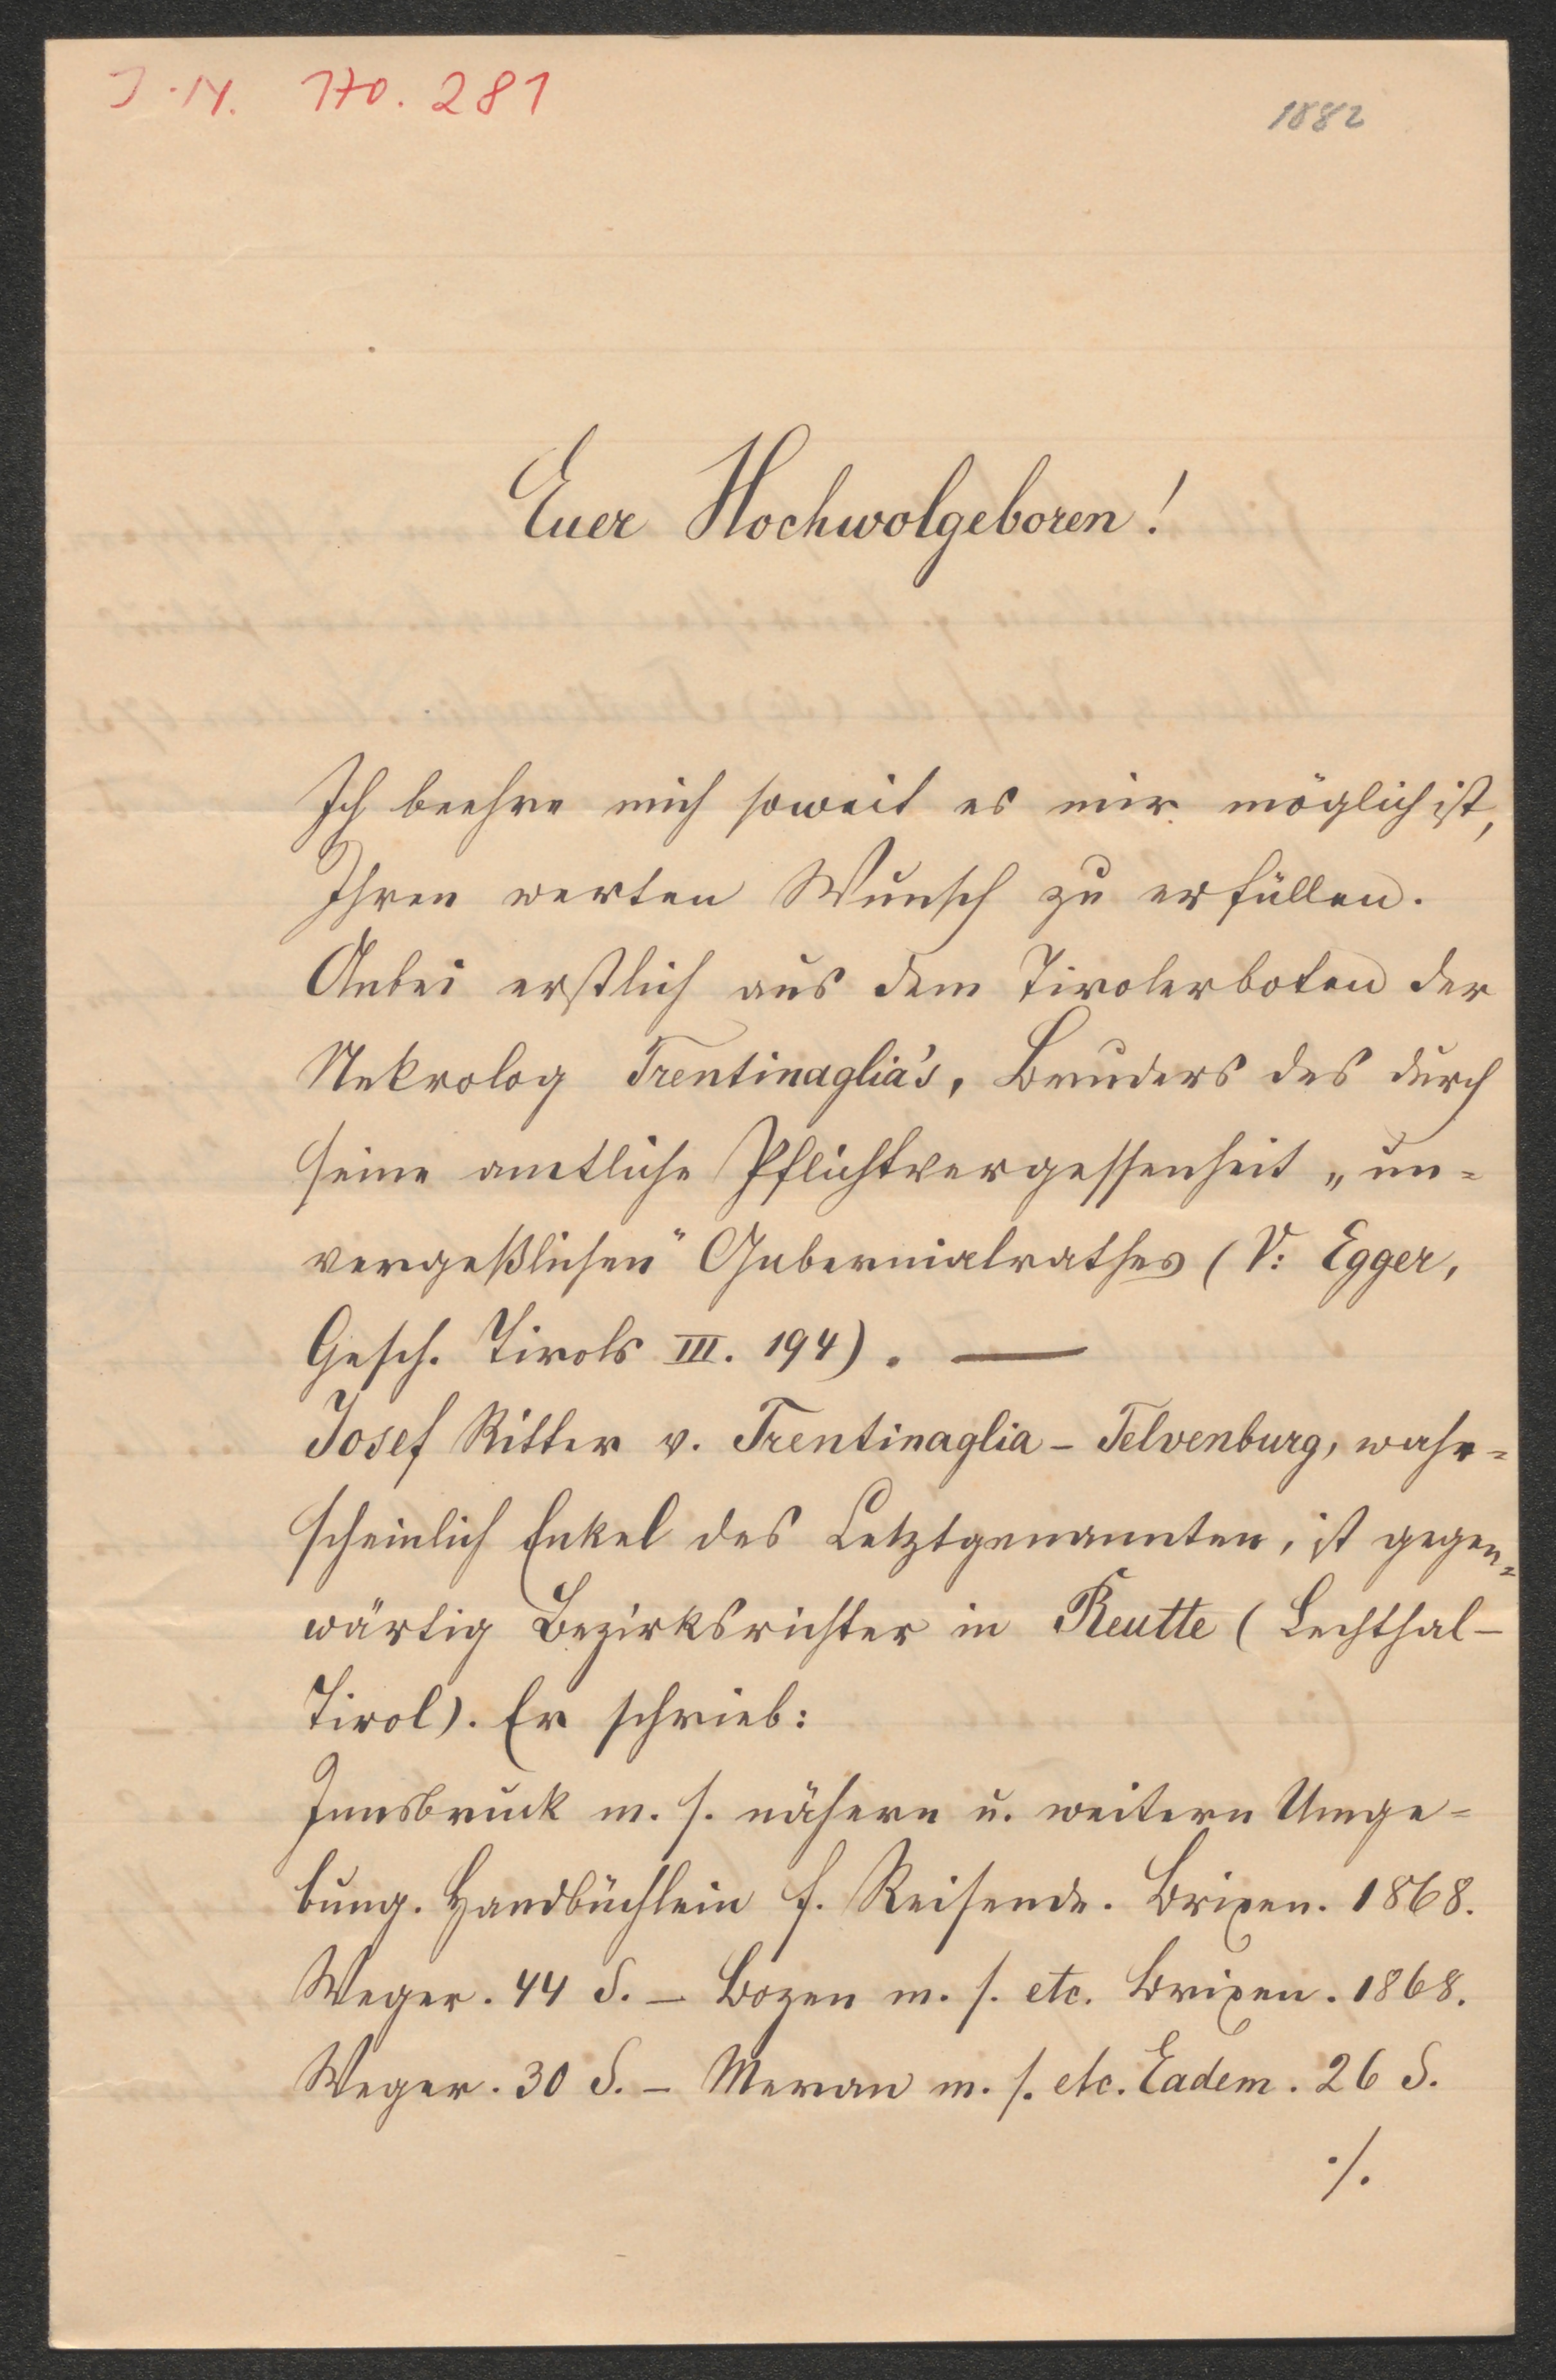 J. N. 170.281
1882
Euer Hochwolgeboren!
Ich beehre mich soweit es mir möglich ist,
Ihren werten Wunsch zu erfüllen.
Anbei erstlich aus dem Tirolerboten der
Nekrolog Trentinaglia's, Bruders des durch
seine amtliche Pflichtvergessenheit „un=
vergeßlichen" Gubernialrathes (V: Egger,
Gesch. Tirols III. 194). —
Josef Ritter v. Trentinaglia - Telvenburg, wahr=
scheinlich Enkel des Letztgenannten, ist gegen=
wärtig Bezirksrichter in Reutte (Lechthal-
Tirol). Er schrieb:
Innsbruck m. s. nähern u. weitern Umge=
bung. Handbüchlein f. Reisende. Brixen. 1868.
Weger. 44 S. — Bozen m. s. etc. Brixen. 1868.
Weger. 30 S. — Meran m. s. etc. Eadem. 26 S.
./.